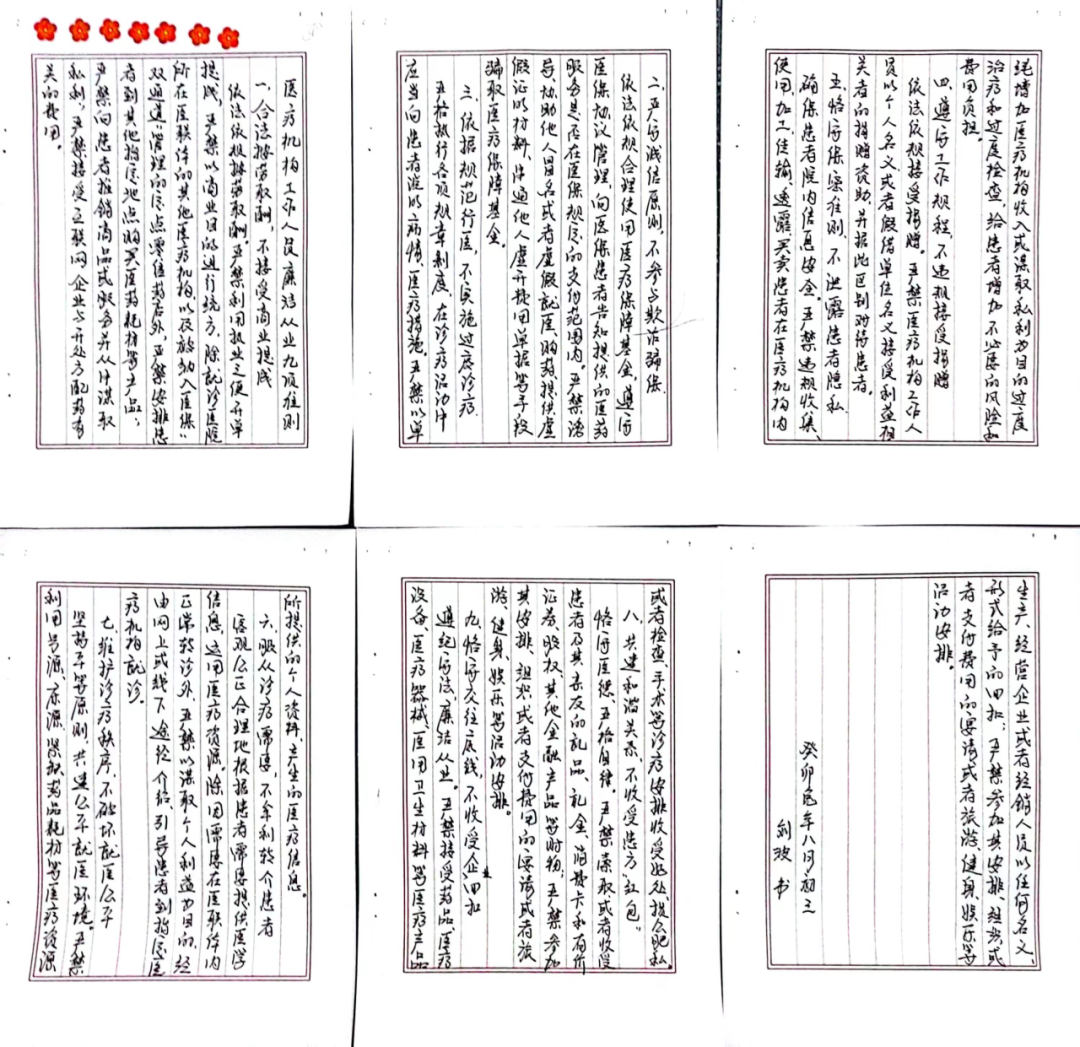 医疗机构工作人员廉洁从业九项准则
一、合法按劳取酬，不接受商业提成
依法依规按劳取酬。严禁利用执业之便开单
提成；严禁以商业目的进行统方；除就诊医院
所在医联体的其他医疗机构，以及被纳入医保“
双通道”管理的定点零售药店外，严禁安排患
者到其他指定地点购买医药耗材等产品；
严禁向患者推销商品或服务并从中谋取
私利；严禁接受互联网企业与开处方配药有
关的费用。
二、严守诚信原则，不参与欺诈骗保
依法依规合理使用医疗保障基金，遵守
医保协议管理，向医保患者告知提供的医药
服务是否在医保规定的支付范围内。严禁诱
导、协助他人冒名或者虚假就医、购药、提供虚
假证明材料、串通他人虚开费用单据等手段
骗取医疗保障基金。
三、依据规范行医，不实施过度诊疗
严格执行各项规章制度，在诊疗活动中
应当向患者说明病情、医疗措施。严禁以单
纯增加医疗机构收入或谋取私利为目的过度
治疗和过度检查，给患者增加不必要的风险和
费用负担。
四、遵守工作规程，不违规接受捐赠
依法依规接受捐赠。严禁医疗机构工作人
员以个人名义或者假借单位名义接受利益相
关者的捐赠资助，并据此区别对待患者。
五、恪守保密准则，不泄露患者隐私
确保患者院内信息安全。严禁违规收集、
使用、加工、传输、透露、买卖患者在医疗机构内
所提供的个人资料、产生的医疗信息。
六、服从诊疗需要，不牟利转介患者
客观公正合理地根据患者需要提供医学
信息、运用医疗资源。除因需要在医联体内
正常转诊外，严禁以谋取个人利益为目的，经
由网上或线下途经介绍、引导患者到指定医
疗机构就诊。
七、维护诊疗秩序，不破坏就医公平
坚持平等原则，共建公平就医环境。严禁
利用号源、床源、紧缺药品耗材等医疗资源
或者检查、手术等诊疗安排收受好处、损公肥私。
八、共建和谐关系，不收受患方“红包”
恪守医德、严格自律。严禁索取或者收受
患者及其亲友的礼品、礼金、消费卡和有价
证券、股权、其他金融产品等财物；严禁参加
其安排、组织或者支付费用的宴请或者旅
游、健身、娱乐等活动安排。
九、恪守交往底线，不收受企业回扣
遵纪守法、廉洁从业。严禁接受药品、医疗
设备、医疗器械、医用卫生材料等医疗产品
生产、经营企业或者经销人员以任何名义、
形式给予的回扣；严禁参加其安排、组织或
者支付费用的宴请或者旅游、健身、娱乐等
活动安排。
癸卯兔年八月初三
刘波书